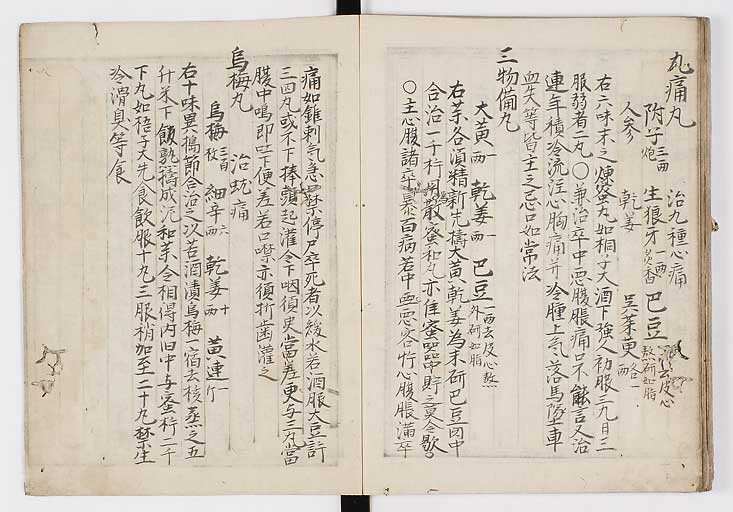 九痛丸　治九種心痛
附子三両炮　生狼牙一両炙香　巴豆去皮心熬研如脂
人参　乾姜　呉茱萸各一両
右六味末之煉蜜丸如梧子大酒下強人初服三丸日三
服弱者二丸〇兼治卒中悪腹脹痛口不能言又治
連年積冷流注心胸痛并冷腫上気落馬墜車
血失等皆主之忌口如常法
三物備丸
大黄一両　乾姜一両　巴豆一両去皮心熬外研如脂
右薬各須精新先擣大黄乾姜為末研巴豆内中
合治一千杵用散蜜和丸亦佳蜜器中貯之莫令歇
〇主心腹諸卒暴百病若中悪客忤心腹脹満卒
痛如錐刺気急口噤停尸卒死者以煖水若酒服大豆許
三四丸或不下捧頭起灌令下咽須臾当差更与三丸当
腹中鳴即吐下便差若口噤亦須折歯灌之
烏梅丸　治蚘痛
烏梅三百枚　細辛六両　乾姜十両　黄連一斤
右十味異擣篩合治之以苦酒漬烏梅一宿去核蒸之五
升米下飯熟擣成泥和薬令相得内臼中与蜜杵二千
下丸如梧子大先食飲服十丸三服稍加至二十丸禁生
冷滑臭等食